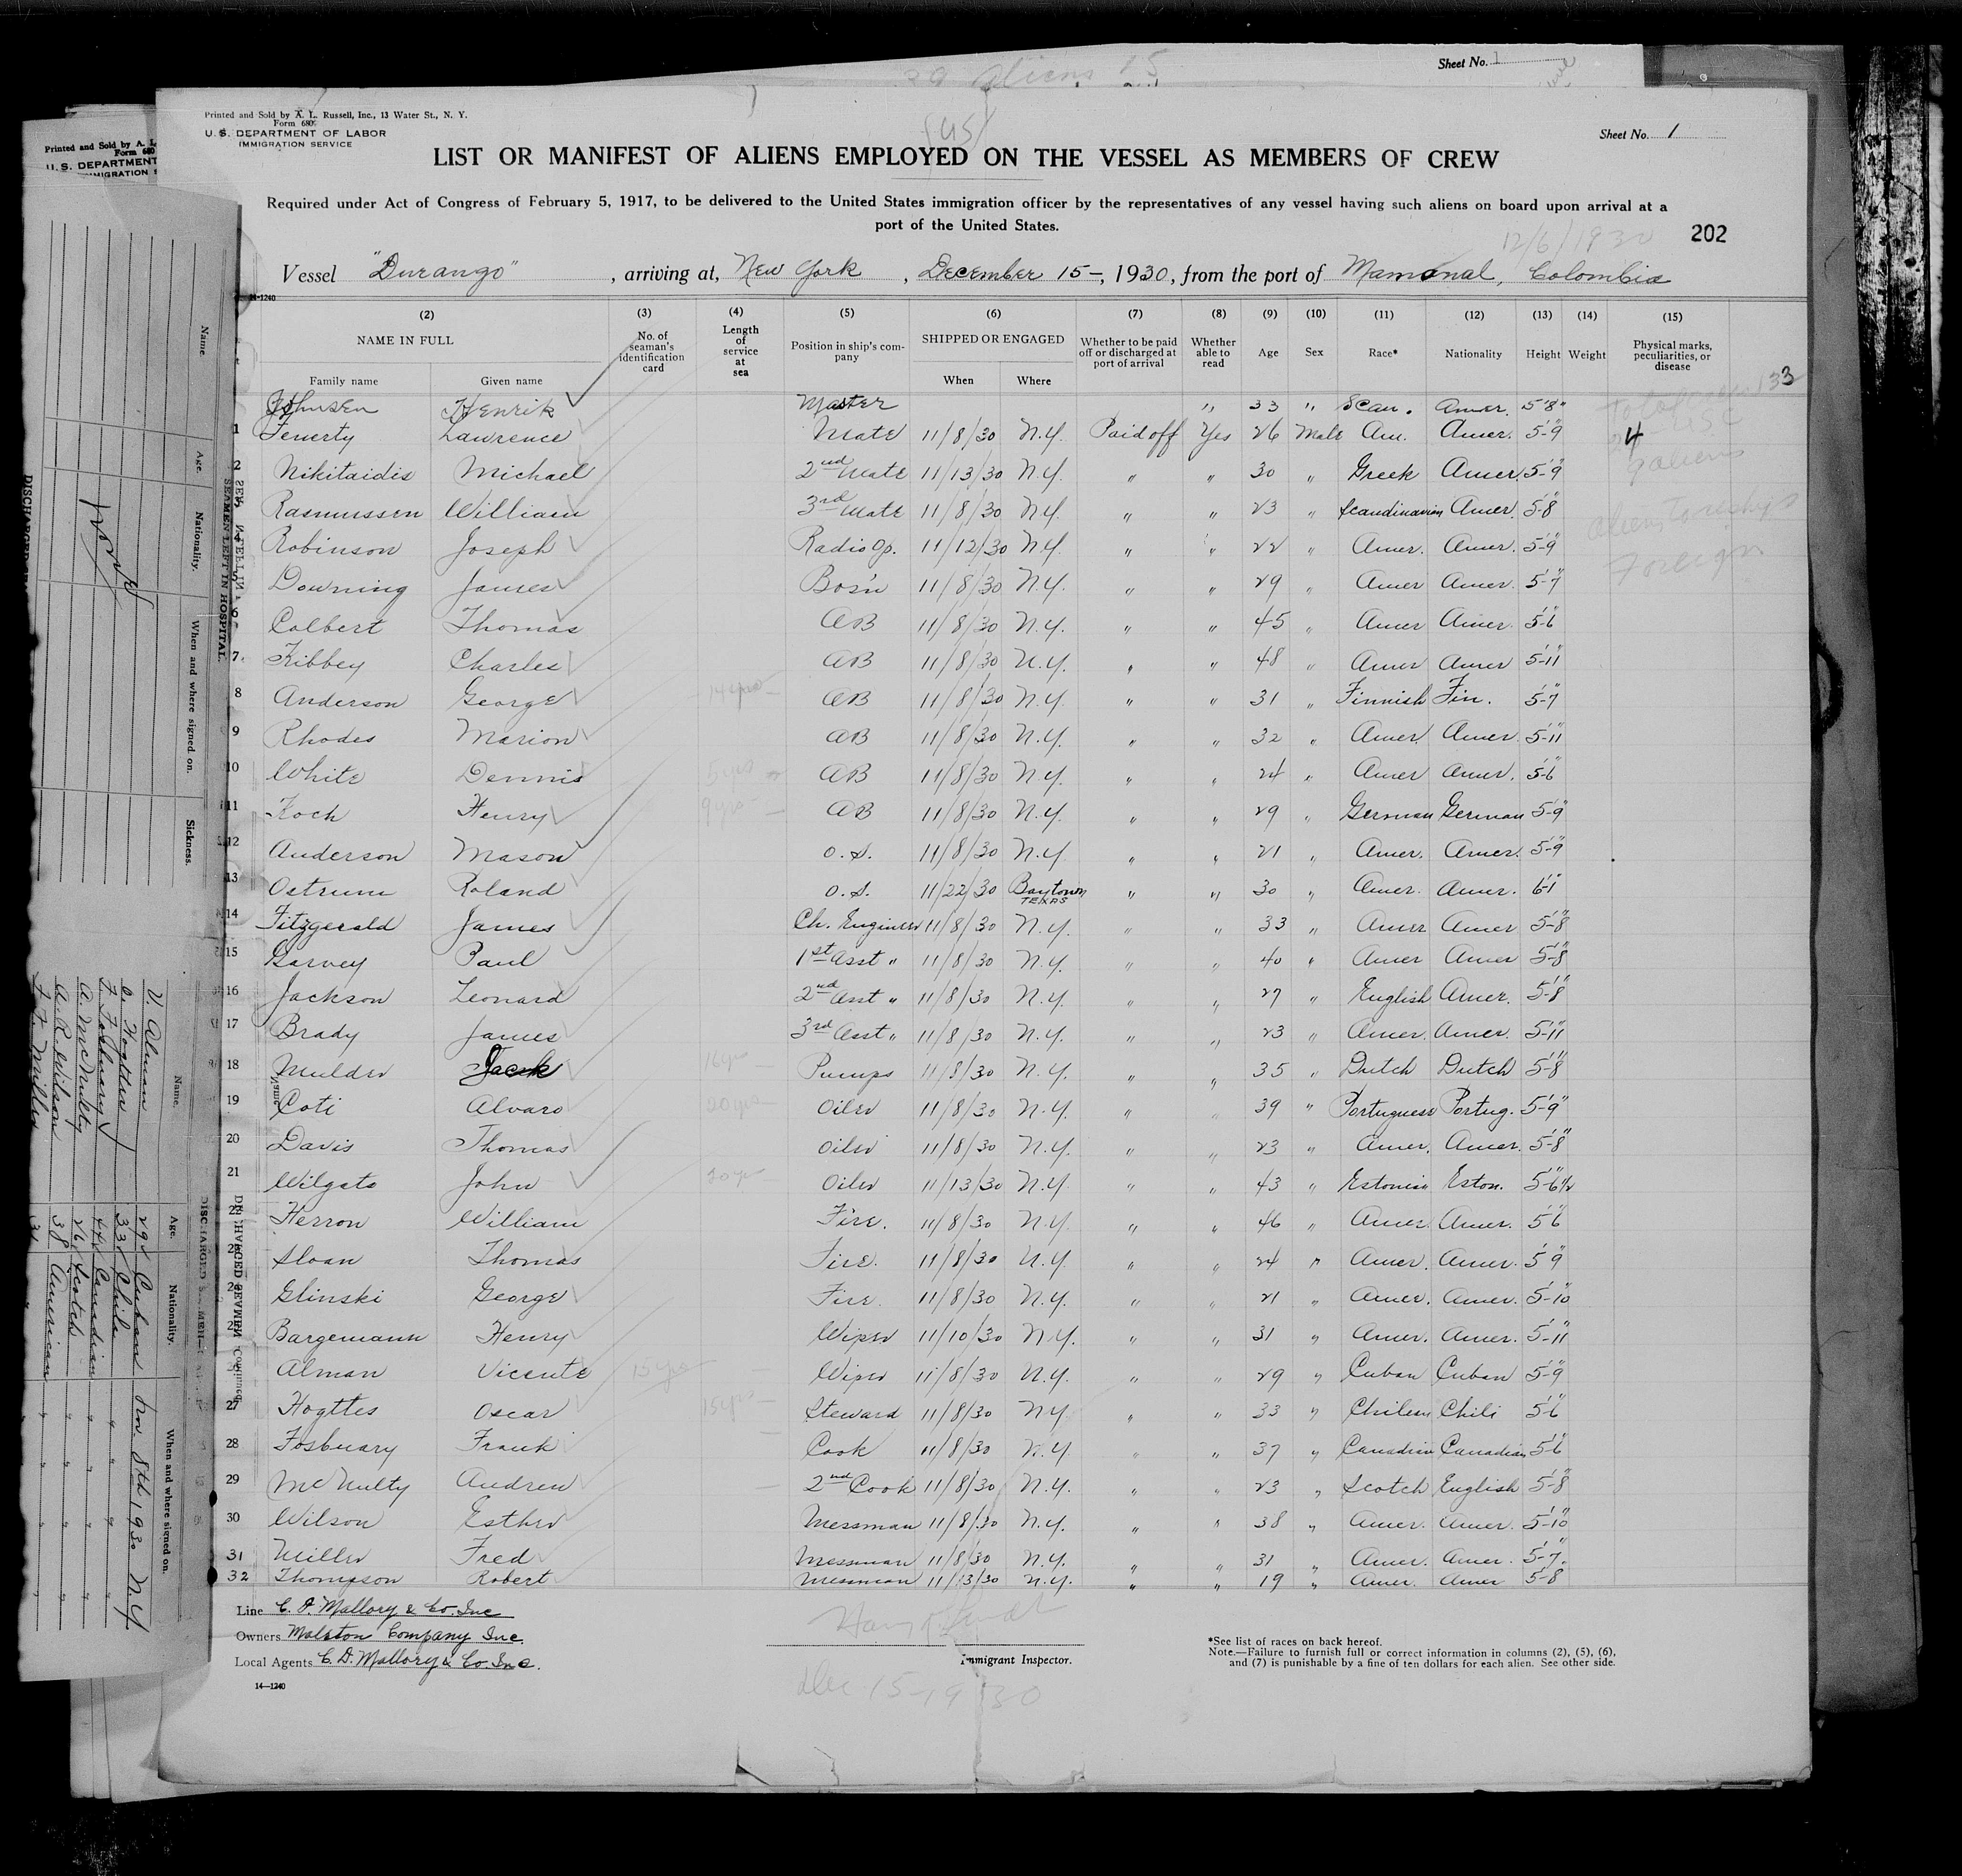 Sheet No. 1
39 Aliens 15
Printed and Sold by A. L. Russell, Inc., 13 Water St., N. Y.
Form 680
U. S. DEPARTMENT OF LABOR
IMMIGRATION SERVICE
(US)
Sheet No. 1
LIST OR MANIFEST OF ALIENS EMPLOYED ON THE VESSEL AS MEMBERS OF CREW
Required under Act of Congress of February 5, 1917, to be delivered to the United States immigration officer by the representatives of any vessel having such aliens on board upon arrival at a
port of the United States.
12/6/1930 202
Vessel "Durango", arriving at, New York, December 15-, 1930, from the port of Mamonal, Colombia
14-1240
(2) (3) (4) (5) (6) (7) (8) (9) (10) (11) (12) (13) (14) (15)
NAME IN FULL No. of seaman's identification card Length of service at sea Position in ship's company SHIPPED OR ENGAGED Whether to be paid off or discharged at port of arrival Whether able to read Age Sex Race* Nationality Height Weight Physical marks, peculiarities, or disease
Family name Given name When Where
Johnsen Henrik Master " 33 " Scan. Amer. 5'8" 33
1 Fenerty Lawrence Mate 11/8/30 N.Y. Paid off Yes 26 Male Am. Amer. 5-9" 24 USC
2 Nikitaidis Michael 2nd Mate 11/13/30 N.Y. " " 30 " Greek Amer. 5-9" 9 aliens
3 Rasmussen William 3rd Mate 11/8/30 N.Y. " " 23 " Scandinavian Amer. 5-8"
aliens to reship
4 Robinson Joseph Radio Op. 11/12/30 N.Y. " " 22 " Amer. Amer. 5-9"
Foreign
5 Downing James Bos'n 11/8/30 N.Y. " " 29 " Amer Amer. 5-7"
6 Colbert Thomas AB 11/8/30 N.Y. " " 45 " Amer Amer. 5-6"
7 Kibbey Charles AB 11/8/30 N.Y. " " 48 " Amer Amer 5-11"
8 Anderson George 14 yrs - AB 11/8/30 N.Y. " " 31 " Finnish Fin. 5-7"
9 Rhodes Marion AB 11/8/30 N.Y. " " 32 " Amer. Amer. 5-11"
10 White Dennis 5 yrs AB 11/8/30 N.Y. " " 24 " Amer Amer. 5-6"
11 Koch Henry 9 yrs - AB 11/8/30 N.Y. " " 29 " German German 5-9"
12 Anderson Mason O.S. 11/8/30 N.Y. " " 21 " Amer. Amer. 5-9"
13 Ostrum Roland O.S. 11/22/30 Baytown TEXAS " " 30 " Amer. Amer. 6-1"
14 Fitzgerald James Ch. Engineer 11/8/30 N.Y. " " 33 " Amer Amer 5-8"
15 Garvey Paul 1st Asst " 11/8/30 N.Y. " " 40 " Amer Amer 5-8"
16 Jackson Leonard 2nd Asst " 11/8/30 N.Y. " " 27 " English Amer. 5-8"
17 Brady James 3rd Asst " 11/8/30 N.Y. " " 23 " Amer. Amer. 5-11"
18 Mulder Jack 16 yrs Pumps 11/8/30 N.Y. " " 35 " Dutch Dutch 5-8"
19 Coti Alvaro 20 yrs - Oiler 11/8/30 N.Y. " " 39 " Portuguese Portug. 5-9"
20 Davis Thomas Oiler 11/8/30 N.Y. " " 23 " Amer. Amer. 5-8"
21 Wilgats John 20 yrs Oiler 11/13/30 N.Y. " " 43 " Estonian Eston. 5-6"1/2
22 Herron William Fire. 11/8/30 N.Y. " " 46 " Amer. Amer. 5'6"
23 Sloan Thomas Fire. 11/8/30 N.Y. " " 24 " Amer. Amer. 5'9"
24 Glinski George Fire. 11/8/30 N.Y. " " 21 " Amer. Amer. 5-10"
25 Bargemann Henry Wiper 11/10/30 N.Y. " " 31 " Amer. Amer. 5-11"
26 Alman Vicente 15 yrs Wiper 11/8/30 N.Y. " " 29 " Cuban Cuban 5-9"
27 Hogttes Oscar 15 yrs - Steward 11/8/30 N.Y. " " 33 " Chilean Chili 5'6"
28 Fosbuary Frank Cook 11/8/30 N.Y. " " 37 " Canadian Canadian 5'6"
29 McNulty Andrew 2nd Cook 11/8/30 N.Y. " " 23 " Scotch English 5-8"
30 Wilson Esther Messman 11/8/30 N.Y. " " 38 " Amer. Amer. 5-10"
31 Miller Fred Messman 11/8/30 N.Y. " " 31 " Amer. Amer. 5-7"
32 Thompson Robert Messman 11/13/30 N.Y. " " 19 " Amer. Amer 5-8
Line C. D. Mallory & Co. Inc
Owners Malston Company Inc.
Local Agents C. D. Mallory & Co. Inc.
14—1240
Immigrant Inspector.
Dec 15-1930
*See list of races on back hereof.
Note.—Failure to furnish full or correct information in columns (2), (5), (6),
and (7) is punishable by a fine of ten dollars for each alien. See other side.
Printed and Sold by A. L.
Form 680
U. S. DEPARTMENT
IMMIGRATION
SEAMEN LEFT IN HOSPITAL.
Name. Age. Nationality. When and where signed on. Sickness.
None
DISCHARGED SEAMEN—Continued
Name. Age. Nationality. When and where signed on.
V. Alman 29 Cuban Nov 8th 1930 N.Y.
O. Hogttes 33 Chile " "
F. Fosbuary Canadian " "
A. McNulty 26 Scotch " "
A. R. Wilson 38 American " "
F. F. Miller 31 " " "